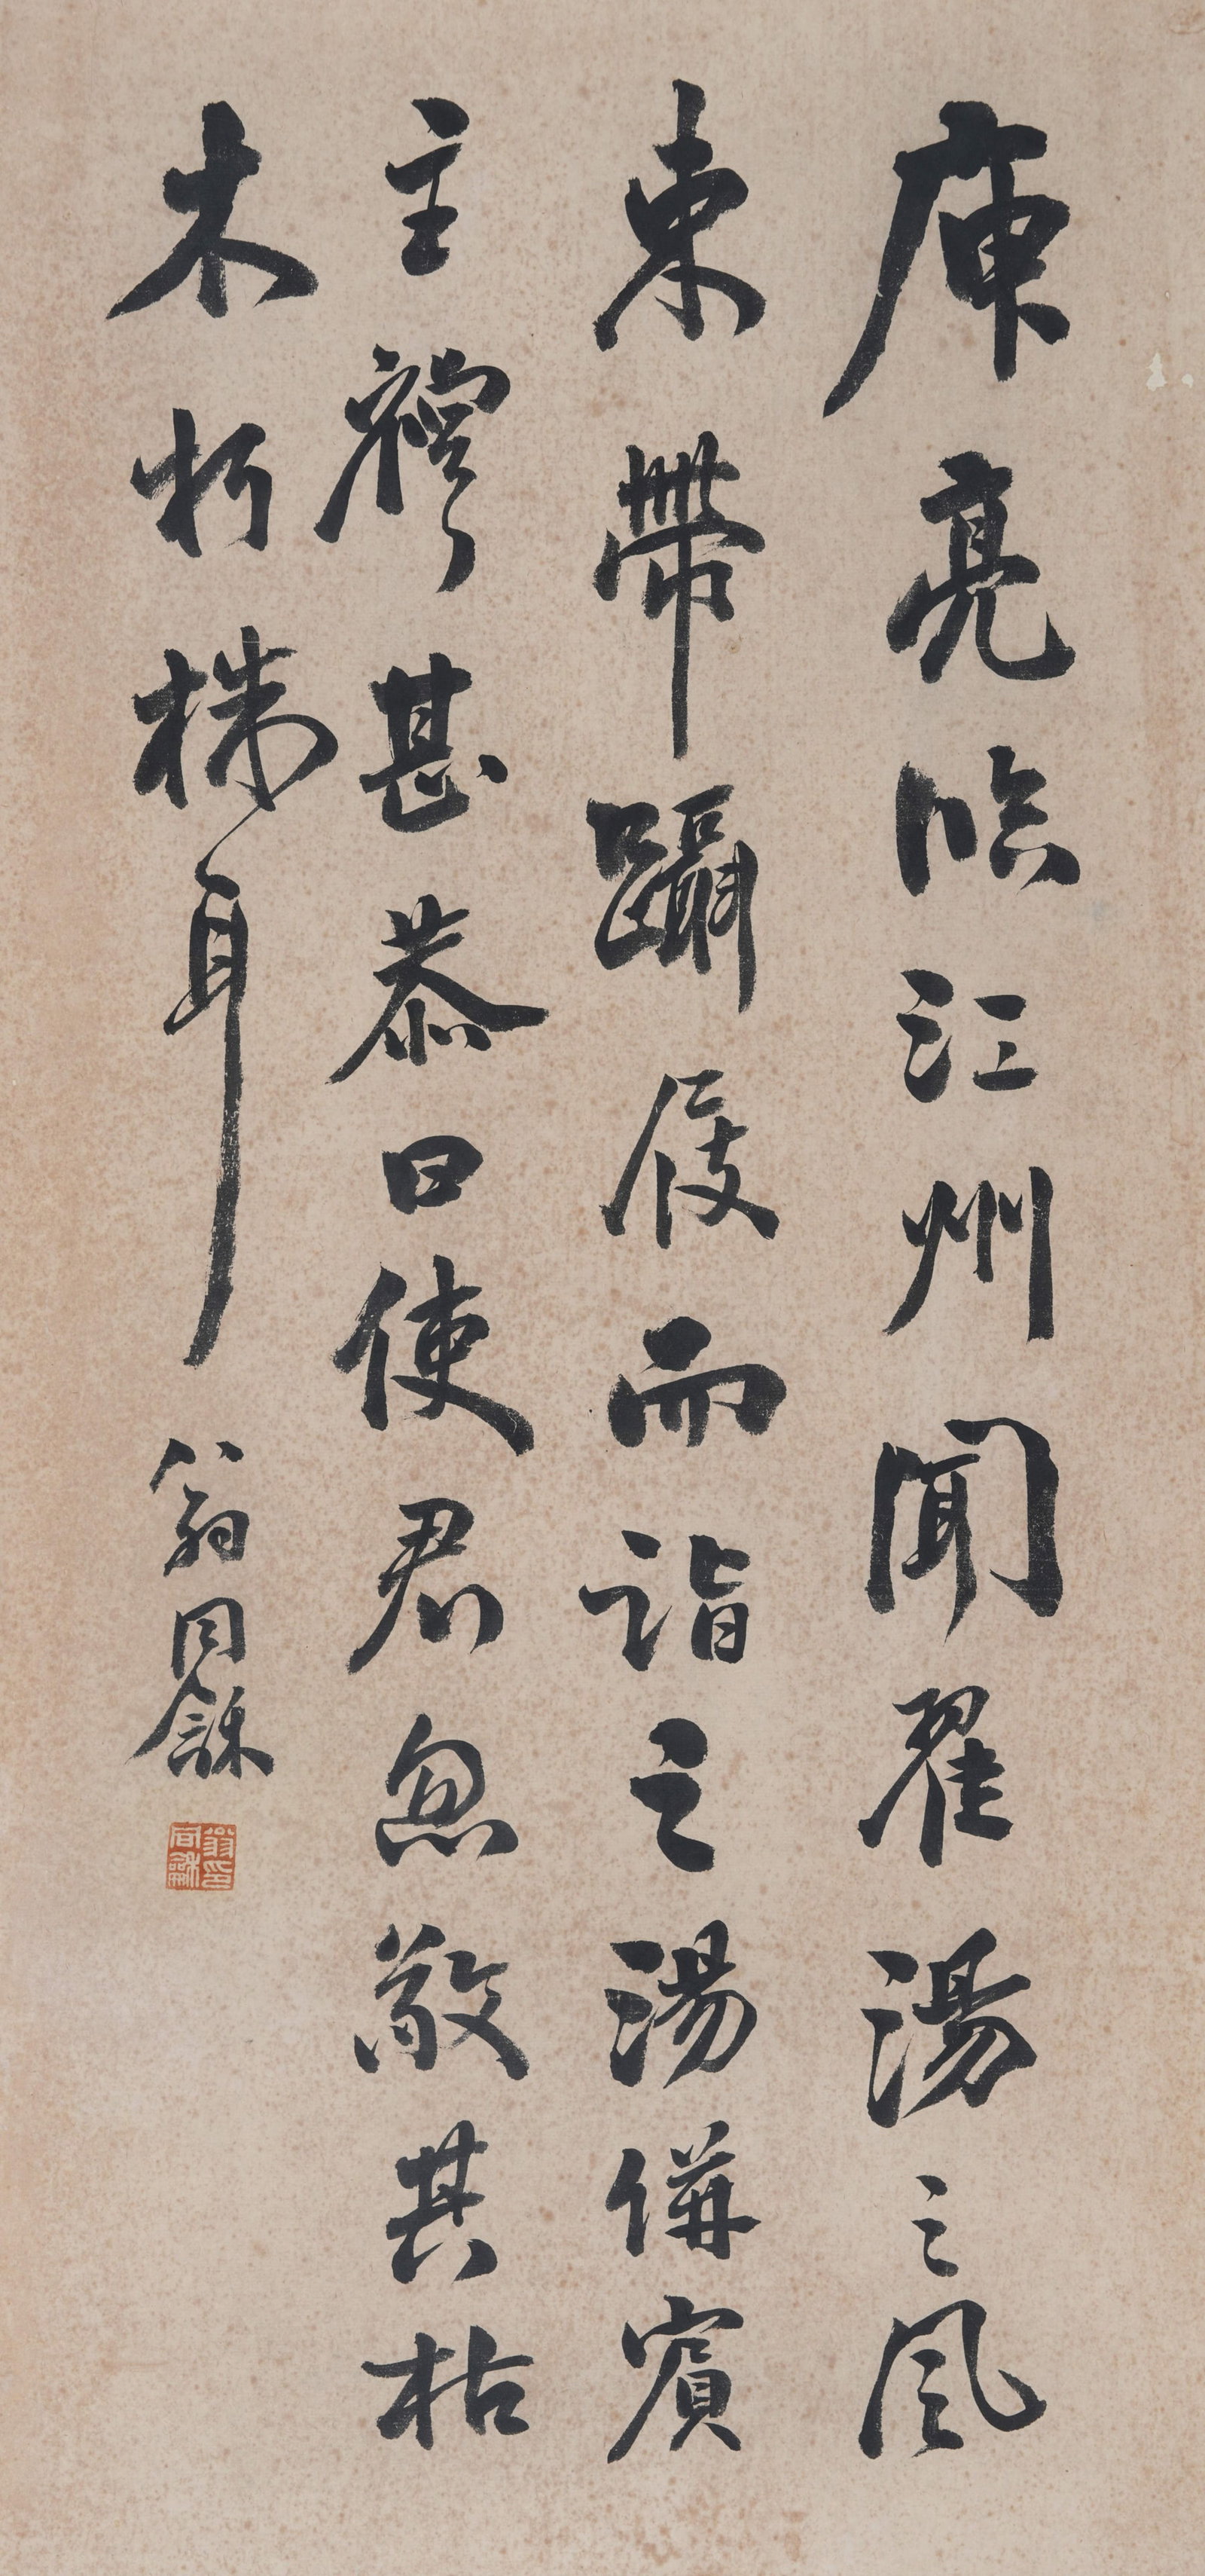 庾亮临江州聞翟湯之風
束帶躡屐而詣之湯偕賓
主禮甚恭曰使君忽敬其枯
木朽株耳
翁同龢
翁同龢印